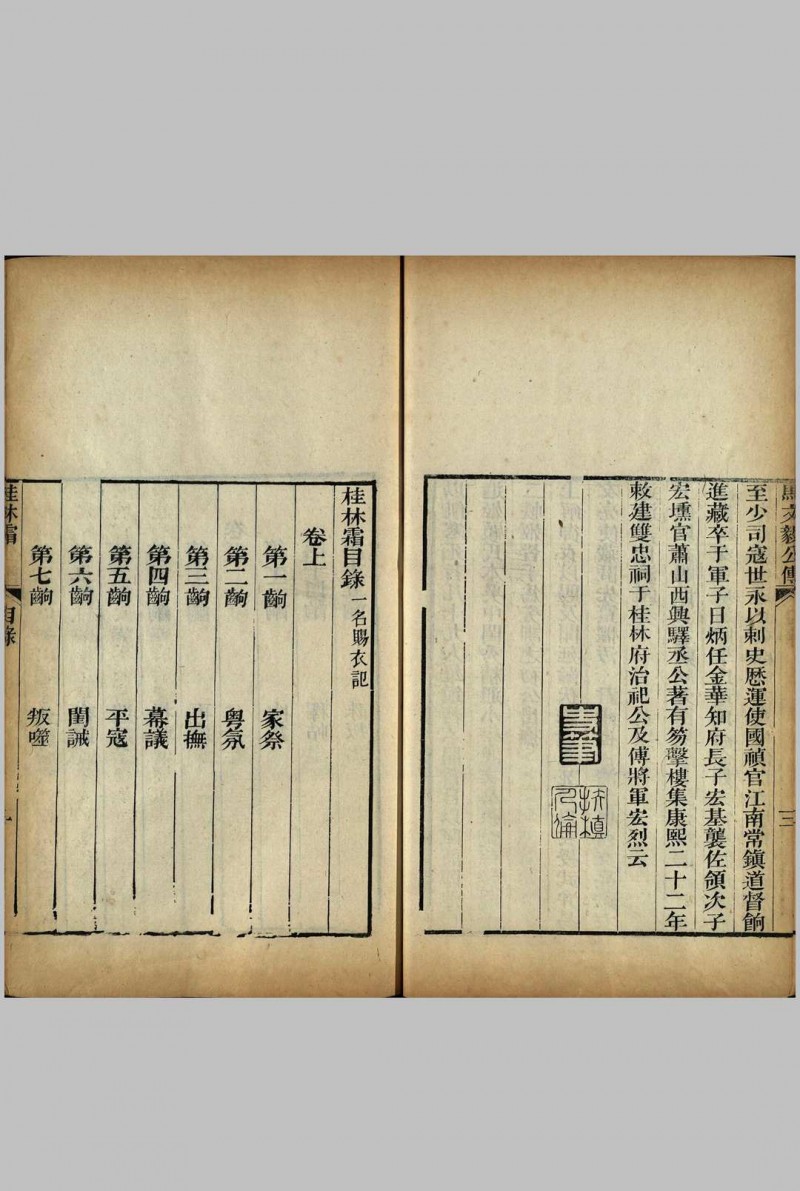 馬文毅公傳
三
至少司寇世永以刺史歷運使國禎官江南常鎮道督餉
進藏卒于軍子日炳任金華知府長子宏基襲佐領次子
宏壎官蕭山西興驛丞公著有笏擊樓集康熙二十二年
敕建雙忠祠于桂林府治祀公及傅將軍宏烈云
扶植
桂林霜目錄 一名賜衣記
卷上
第一齣 家祭
第二齣 粵氛
第三齣 出撫
第四齣 幕議
第五齣 平寇
第六齣 閨誡
第七齣 叛噬
桂林霜
目錄
一